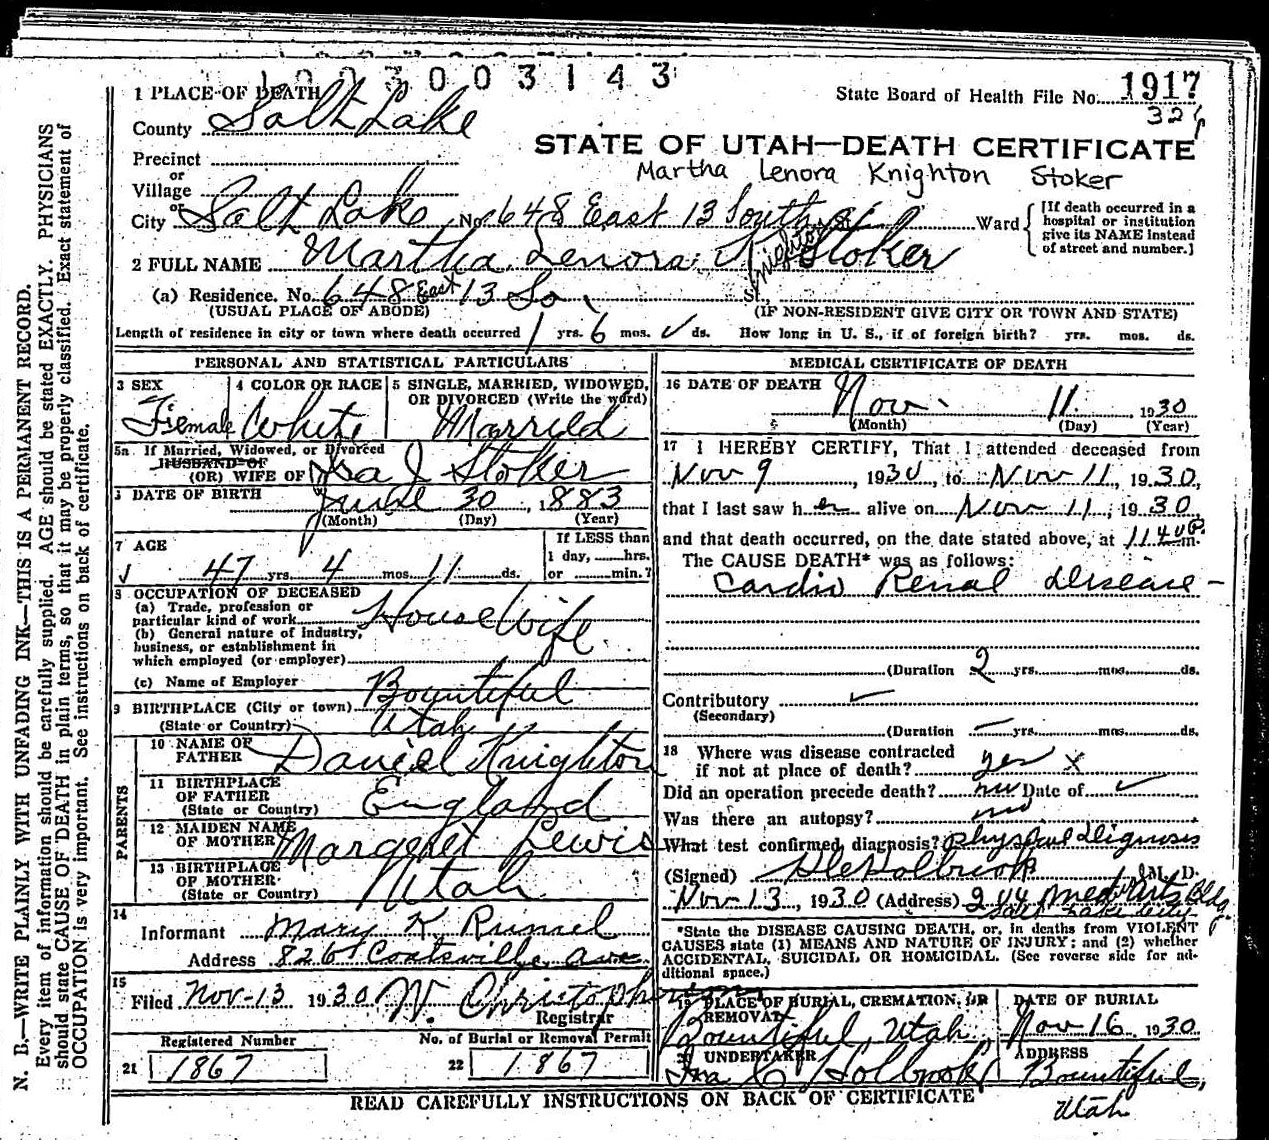 1003003143
1 PLACE OF DEATH
State Board of Health File No. 1917
326
County Salt Lake
STATE OF UTAH—DEATH CERTIFICATE
Precinct
or
Village
Martha Lenora Knighton Stoker
or
City Salt Lake No. 648 East 13 South St. Ward
[If death occurred in a
hospital or institution
give its NAME instead
of street and number.]
2 FULL NAME Martha Lenora Knighton Stoker
(a) Residence. No. 648 East 13 So. St.
(USUAL PLACE OF ABODE) (IF NON-RESIDENT GIVE CITY OR TOWN AND STATE)
Length of residence in city or town where death occurred 1 yrs. 6 mos. ✓ ds. How long in U. S., if of foreign birth? yrs. mos. ds.
PERSONAL AND STATISTICAL PARTICULARS
3 SEX 4 COLOR OR RACE 5 SINGLE, MARRIED, WIDOWED,
OR DIVORCED (Write the word)
Female White Married
5a If Married, Widowed, or Divorced
HUSBAND OF
(OR) WIFE OF Ira J Stoker
DATE OF BIRTH June 30, 1883
(Month) (Day) (Year)
7 AGE
If LESS than
1 day, hrs.
or min.?
47 yrs. 4 mos. 11 ds.
8 OCCUPATION OF DECEASED
(a) Trade, profession or
particular kind of work HouseWife
(b) General nature of industry,
business, or establishment in
which employed (or employer)
(c) Name of Employer
9 BIRTHPLACE (City or town) Bountiful
(State or Country) Utah
PARENTS
10 NAME OF
FATHER Daniel Knighton
11 BIRTHPLACE
OF FATHER
(State or Country) England
12 MAIDEN NAME
OF MOTHER Margeret Lewis
13 BIRTHPLACE
OF MOTHER
(State or Country) Utah
14
Informant Mary K.
Address 826 Coatsville Ave
15
Filed Nov-13 1930 W. Christopherson
Registrar
Registered Number No. of Burial or Removal Permit
21 1867 22 1867
MEDICAL CERTIFICATE OF DEATH
16 DATE OF DEATH Nov. 11 1930
(Month) (Day) (Year)
17 I HEREBY CERTIFY, That I attended deceased from
Nov 9, 1930, to Nov 11, 1930,
that I last saw her alive on Nov 11, 1930,
and that death occurred, on the date stated above, at 11 40 P. m.
The CAUSE DEATH* was as follows:
Cardio Renal Disease -
(Duration 2 yrs. mos. ds.
Contributory ✓
(Secondary)
(Duration — yrs. mos. ds.
18 Where was disease contracted
if not at place of death? yes X
Did an operation precede death? no Date of ✓
Was there an autopsy? no
What test confirmed diagnosis? physical Diagnosis
(Signed) Holbrook M. D.
Nov-13, 1930 (Address) 244 Med Arts Bldg.
Salt Lake City
*State the DISEASE CAUSING DEATH, or, in deaths from VIOLENT
CAUSES state (1) MEANS AND NATURE OF INJURY; and (2) whether
ACCIDENTAL, SUICIDAL OR HOMICIDAL. (See reverse side for ad-
ditional space.)
19 PLACE OF BURIAL, CREMATION, OR
REMOVAL
Bountiful, Utah
DATE OF BURIAL
Nov 16 1930
20 UNDERTAKER
Ira C Holbrook
ADDRESS
Bountiful,
Utah
READ CAREFULLY INSTRUCTIONS ON BACK OF CERTIFICATE
N. B.—WRITE PLAINLY WITH UNFADING INK—THIS IS A PERMANENT RECORD.
Every item of information should be carefully supplied. AGE should be stated EXACTLY. PHYSICIANS
should state CAUSE OF DEATH in plain terms, so that it may be properly classified. Exact statement of
OCCUPATION is very important. See instructions on back of certificate.